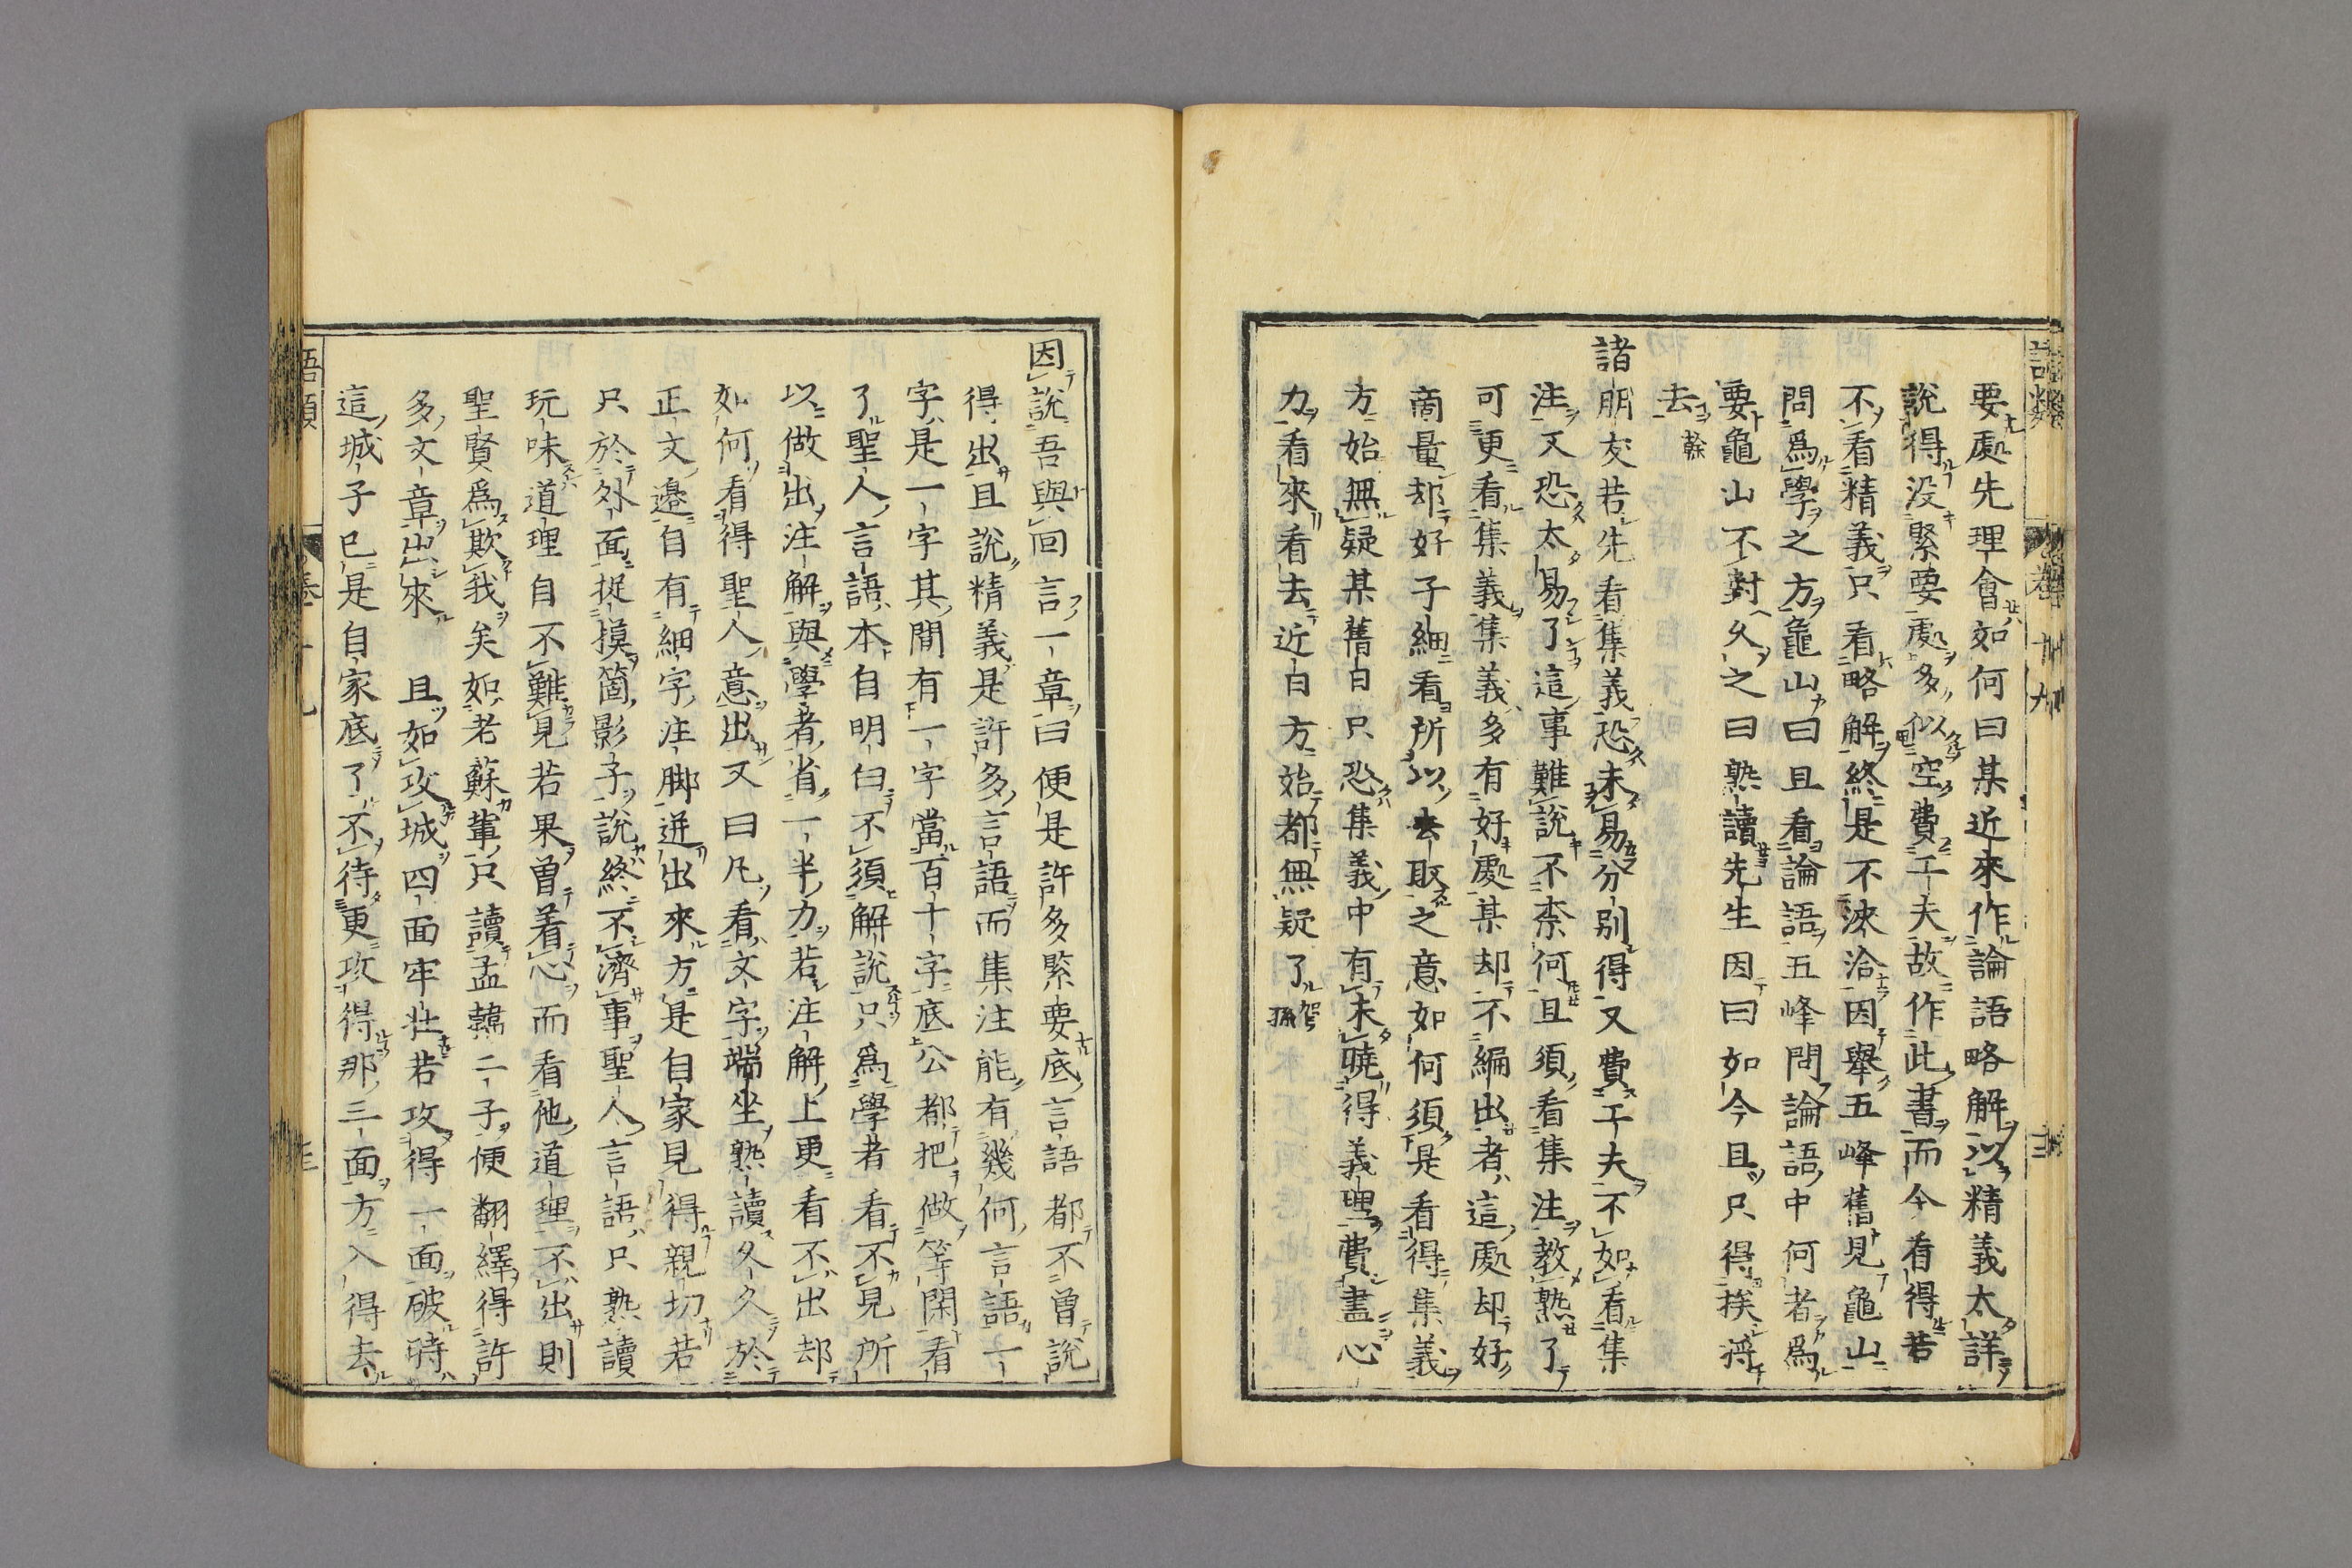 要處先理會如何曰某近來作論語略解以精義太詳
說得没緊要處多似空費工夫故作此書而今看得若
不看精義只看略解終是不浹洽因舉五峰舊見龜山
問爲學之方龜山曰且看論語五峰問論語中何者爲
要龜山不對久之曰熟讀先生因曰如今且只得挨將
去 榦
諸朋友若先看集義恐未易分別得又費工夫不如看集
注又恐太易了這事難說不柰何且須看集注教熟了
可更看集義集義多有好處某却不編出者這處却好
商量却好子細看所以去取之意如何須是看得集義
方始無疑某舊日只恐集義中有未曉得義理費盡心
力看來看去近日方始都無疑了 賀孫
因說吾與回言一章曰便是許多緊要底言語都不曾說
得出且說精義是許多言語而集注能有幾何言語一
字是一字其間有一字當百十字底公都把做等閑看
了聖人言語本自明白不須解說只爲學者看不見所
以做出注解與學者省一半力若注解上更看不出却
如何看得聖人意出又曰凡看文字端坐熟讀久久於
正文邊自有細字注脚迸出來方是自家見得親切若
只於外面捉摸箇影子說終不濟事聖人言語只熟讀
玩味道理自不難見若果曾着心而看他道理不出則
聖賢爲欺我矣如老蘇輩只讀孟韓二子便翻繹得許
多文章出來 且如攻城四面牢壯若攻得一面破時
這城子已是自家底了不待更攻得那三面方入得去